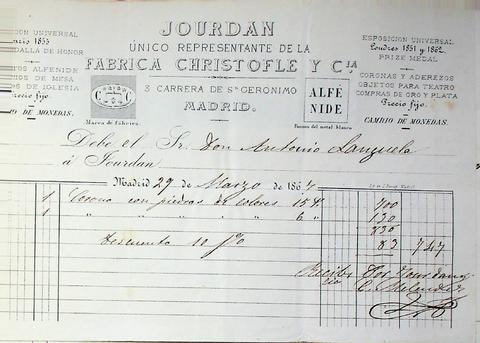 JOURDAN
ÚNICO REPRESENTANTE DE LA
FÁBRICA CHRISTOFLE Y C.IA
3 CARRERA DE Sn GERONIMO 3
MADRID.
EXPOSICION UNIVERSAL
París 1855
MEDALLA DE HONOR
ALFENIDE
DE MESA
DE IGLESIA
Precio fijo.
CAMBIO DE MONEDAS.
Marca de Fábrica.
ALFÉ
NIDE
EXPOSICION UNIVERSAL
Londres 1851 y 1862.
PRIZE MEDAL
CORONAS Y ADEREZOS
OBJETOS PARA TEATRO
COMPRAS DE ORO Y PLATA
Precio fijo.
CAMBIO DE MONEDAS.
Debe el Sr. Don Antonio
á Jourdan
Madrid 29 de Marzo de 186
1 Corona con piedras de colores 700
1 " " " " " 130
830
Descuento 10 p% 83 747
Recibí